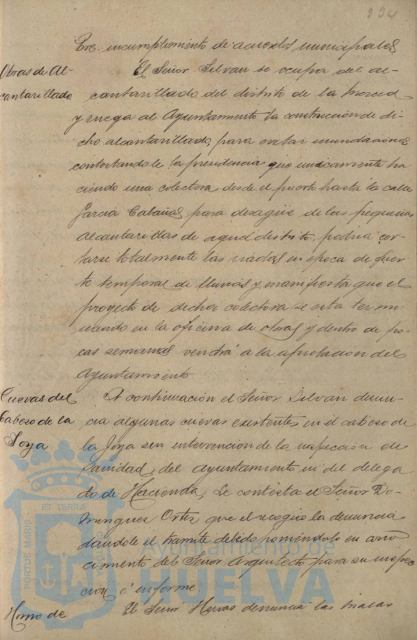 334
Por incumplimiento de acuerdos municipales
Obras de Al-
cantarillado
El Señor Silván se ocupa del al-
cantarillado del distrito de la Merced
y ruega al Ayuntamiento la construcción de di-
cho alcantarillado, para evitar inundaciones
contestandole la presidencia que unicamente ha-
ciendo una colectora desde el puerto hasta la calle
García Cabañas, para desagüe de las pequeñas
alcantarillas de aquel distrito, podría evi-
tarse totalmente las riadas en época de fuer-
te temporal de lluvias y manifiesta que el
proyecto de dicha colectora se esta termi-
nando en la oficina de obras y dentro de po-
cas semanas vendrá a la aprobación del
Ayuntamiento
Cuevas del
Cabezo de la
Joya
A continuación el Señor Silván denun-
cia algunas cuevas existentes en el cabezo de
la Joya sin intervención de la inspección de
Sanidad, del ayuntamiento ni del delega-
do de Hacienda, Le contesta el Señor Do-
minguez Ortiz que el recogio la denuncia
dándole el tramite debido poniéndolo en cono-
cimiento del Señor Arquitecto para su inspec-
ción é informe
Horno de
El Señor Huras denuncia las malas
PORTUS MARIS
ET TERRAE
Ayuntamiento de
HUELVA